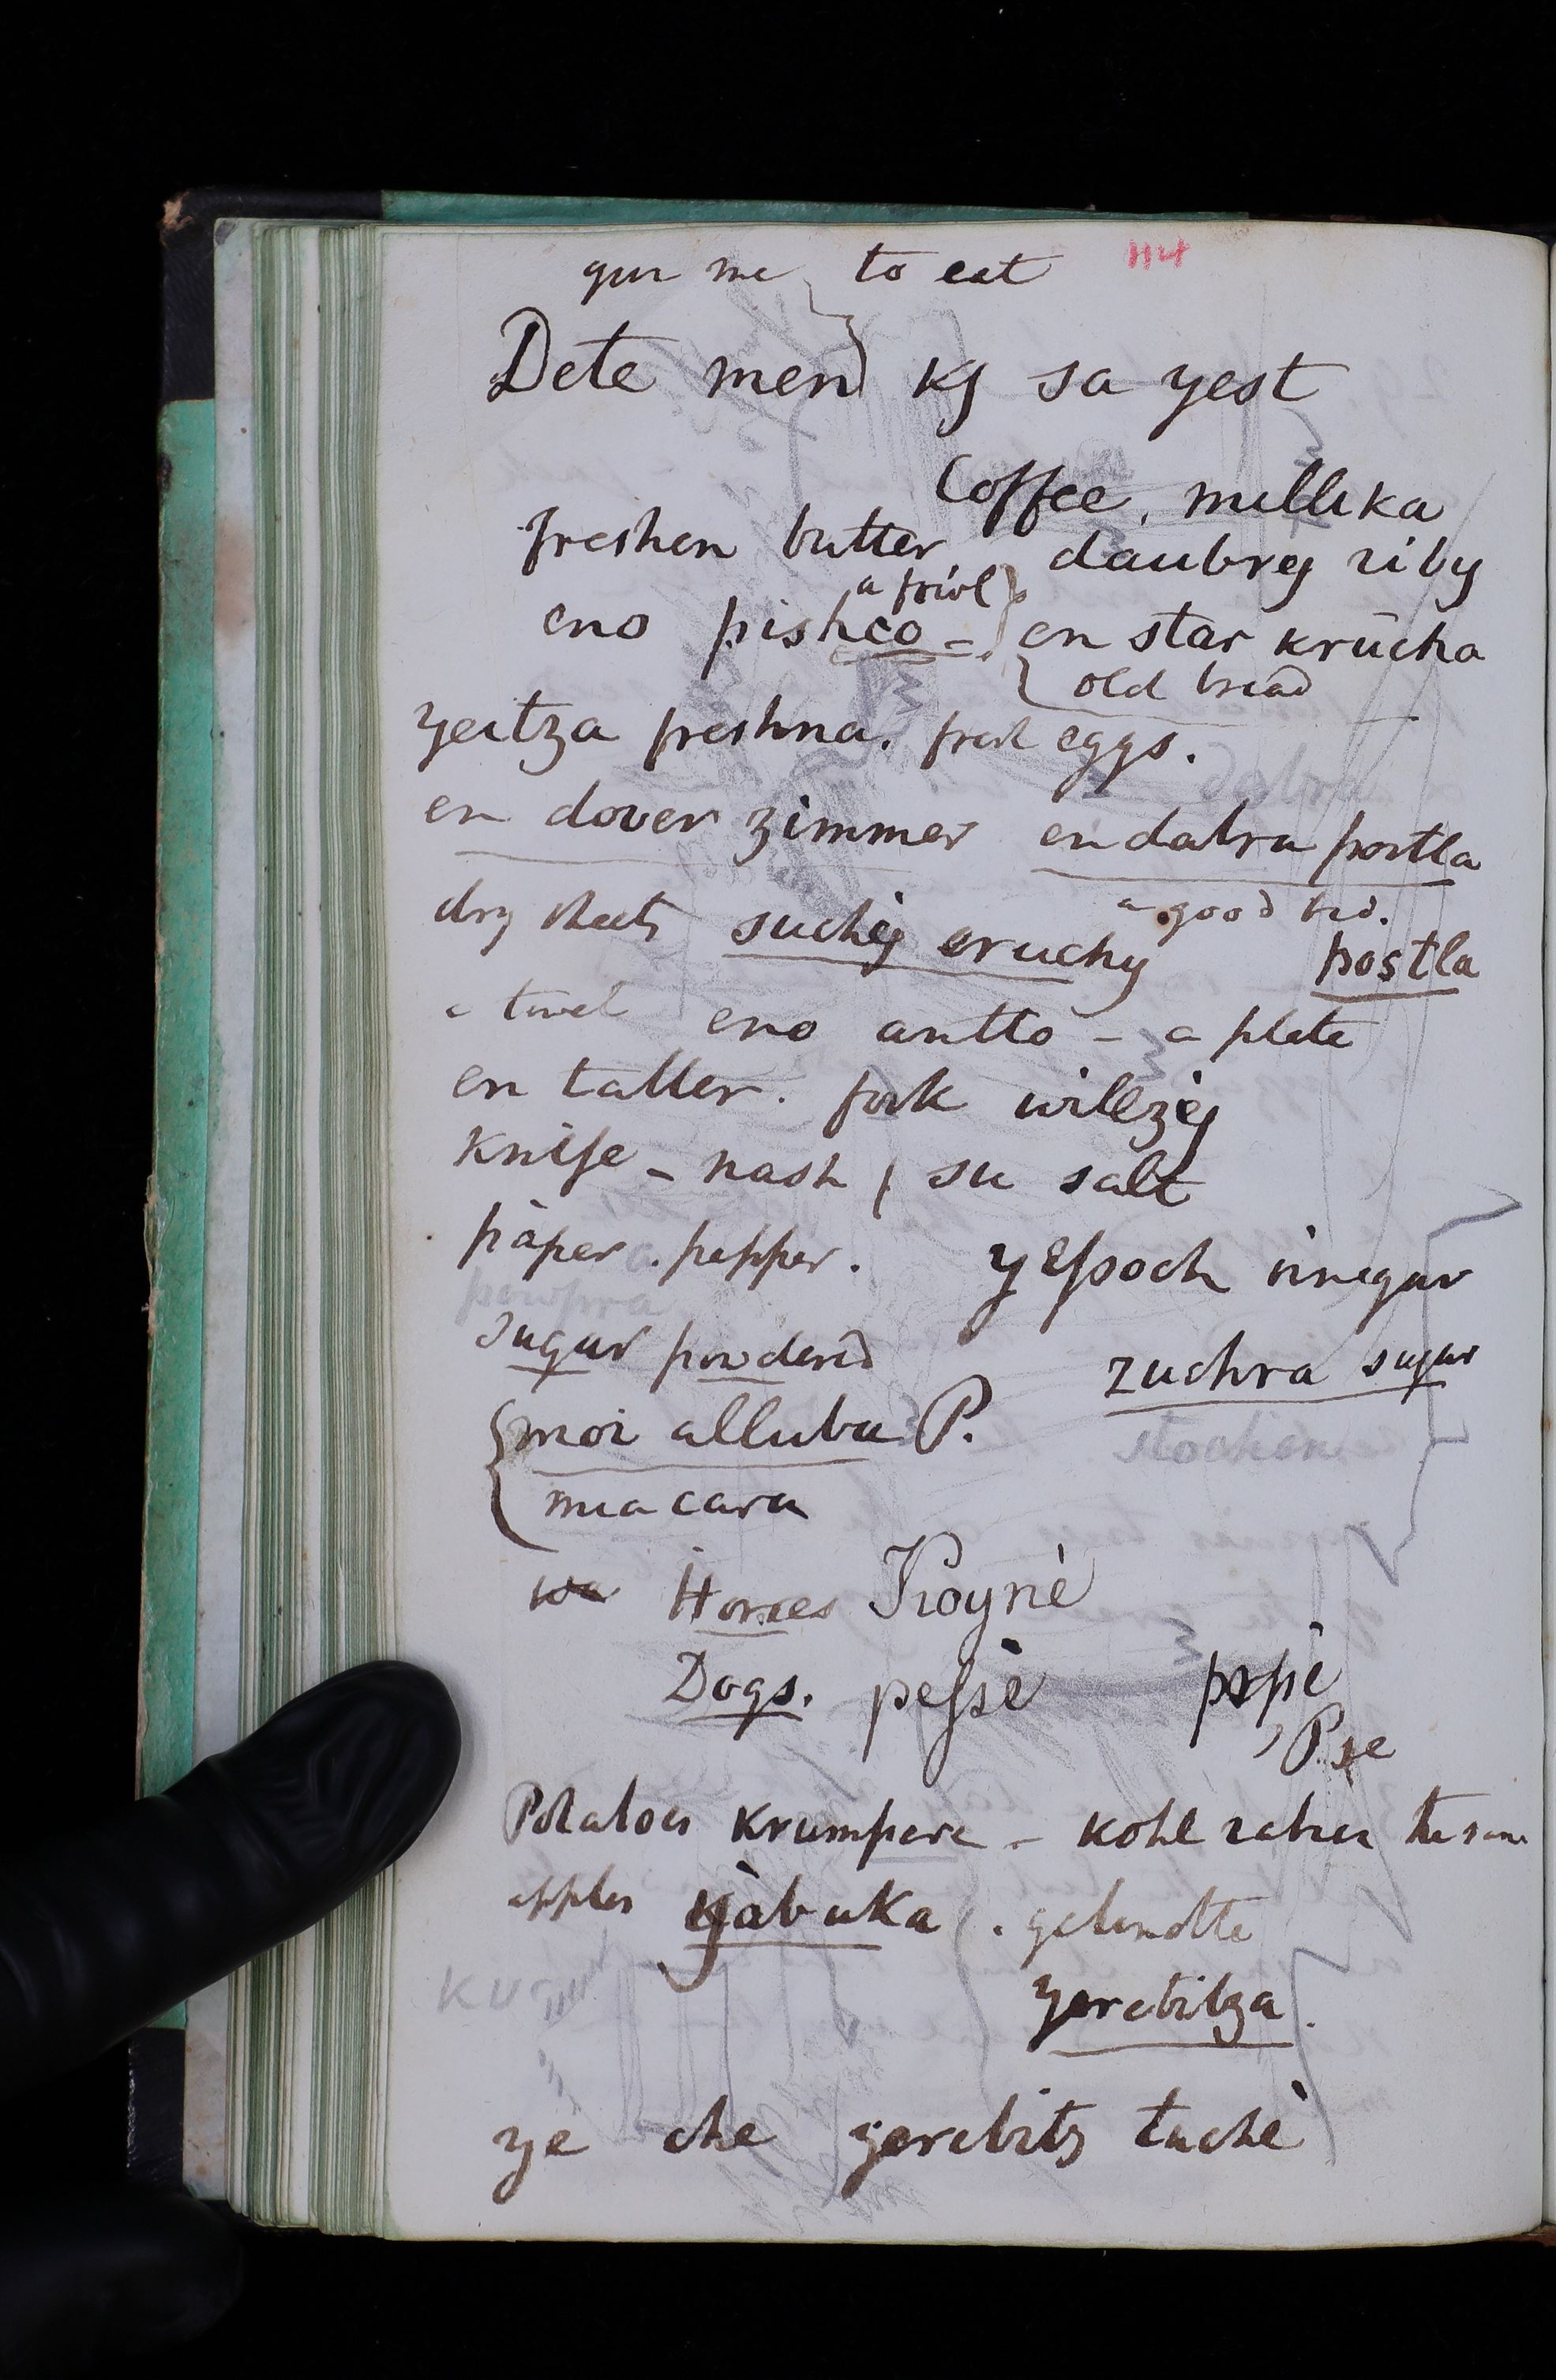 114
give me to eat
Dete men kj sa yest
Coffee, milleka
freshen butter daubrej riby
a fowl
eno pishco – en star krücha
old bread
yeitza freshna. fresh eggs.
dobra
en dover zimmer en dabra postla
a good bed.
dry sheets suchej eruchy postla
a towel eno antto – a plate
en taller. fork willzej
knife – nash su salt
pàper. pepper. yessoch vinegar
powpra
sugar powdered zuchra sugar
moi alluba P. stochen
mia cara
Horses Koynè
Dogs. pessè pspè
Pse
Potatoes krumpere – kohl rabies the same
apples yàbuka .
yerebitza.
ye che yerebitz tuchè